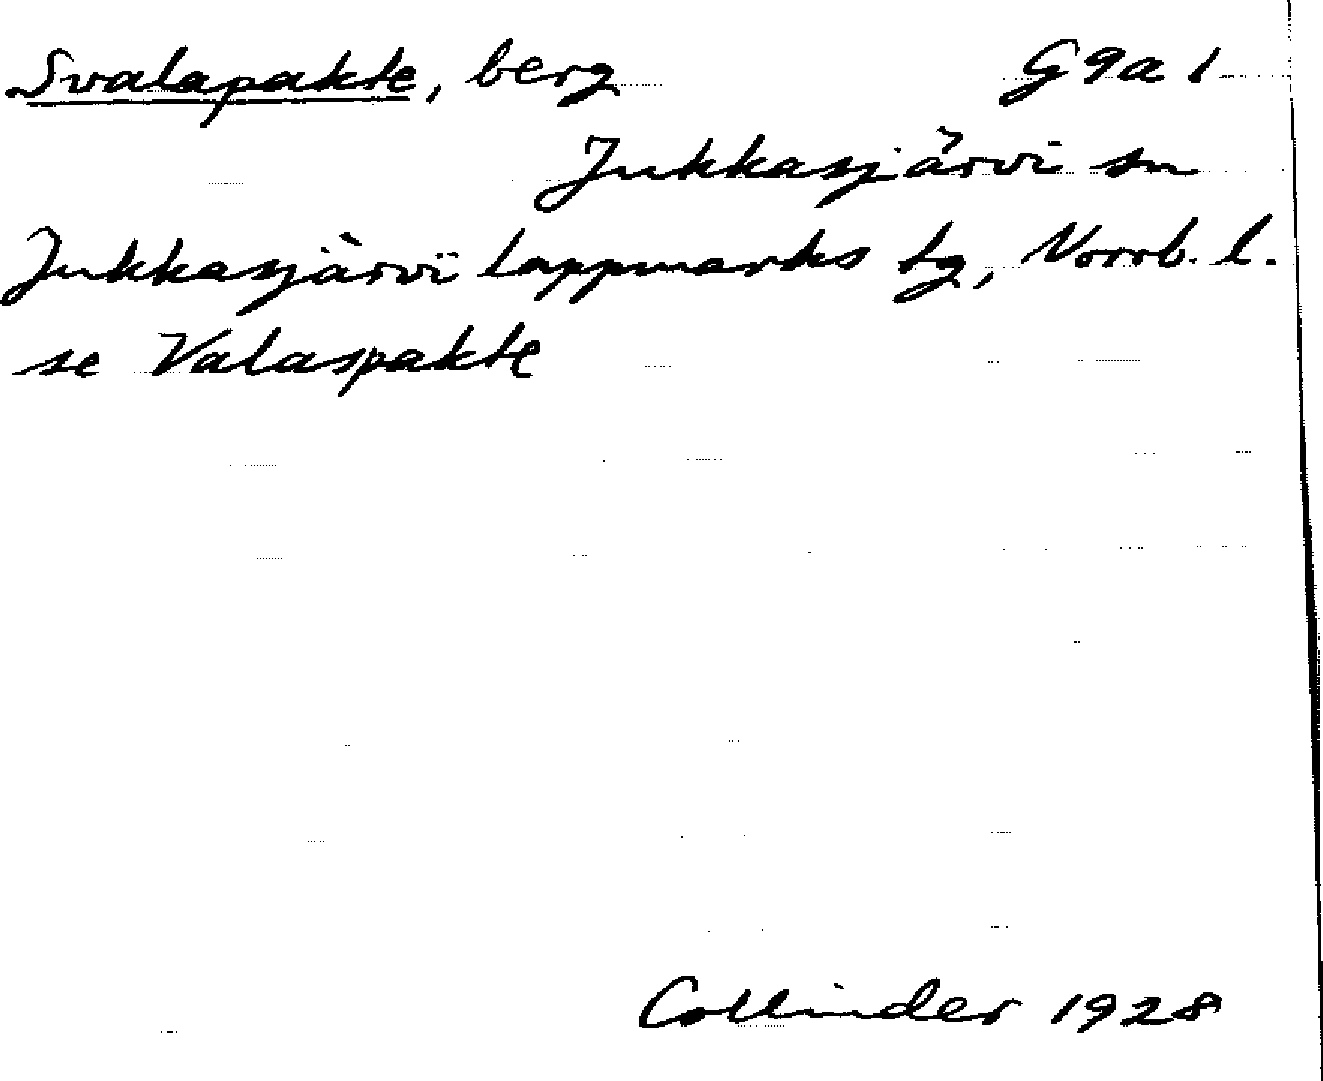 Svalapakte, berg G9a1
Jukkasjärvi sn
Jukkasjärvi lappmarks tg, Norrb. l.
se Valaspakte
Collinder 1928